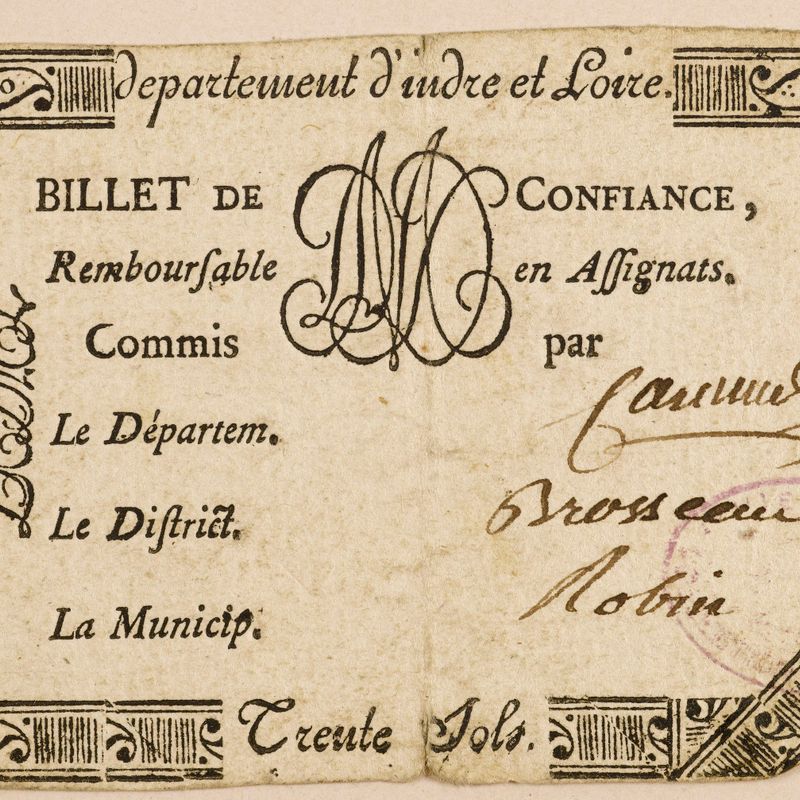 departement d'indre et Loire.
BILLET DE CONFIANCE,
Rembourſable en Aſſignats.
Commis par
Le Départem.
Le Diſtrict.
Brosseau
La Municip.
Robin
Trente Sols.